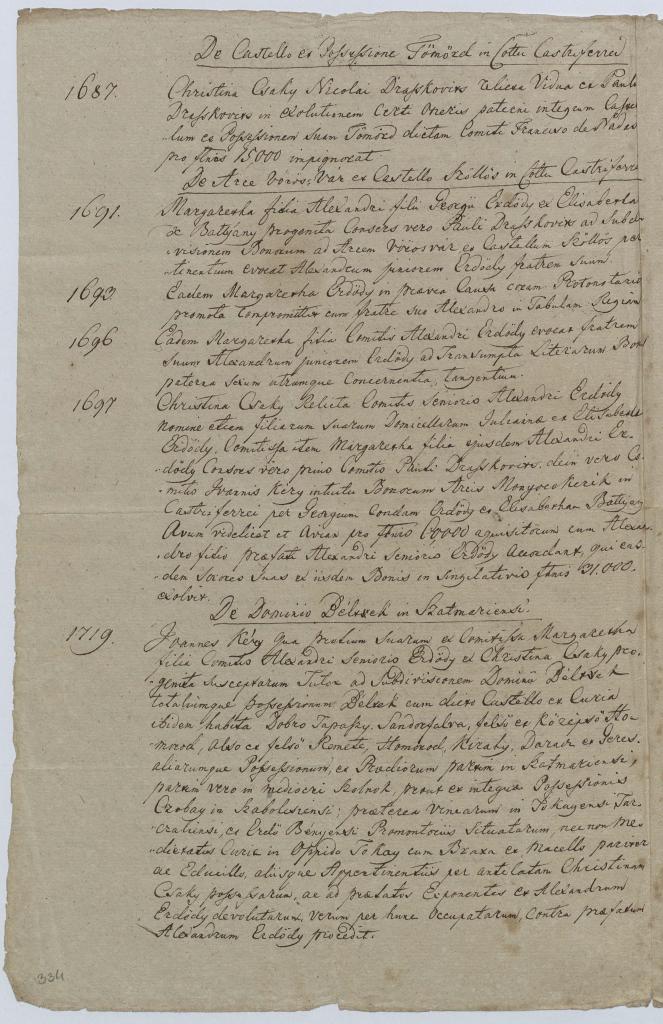 De Castello et Possessione Tömörd in Cottu Castriferrei
1687. Christina Csaky Nicolai Drasskovics relicta Vidua et Pauli
Drasskovics in exolutionem Certi Oneris paterni integrum Castel-
lum et Possessionem suam Tömörd dictam Comiti Francisco de Nadas
pro flnis 15000 impignorat.
De Arce Vörös-Var et Castello Szöllös in Cottu Castriferrei
1691. Margaretha filia Alexandri filii Georgii Erdödy ex Elisabetha
de Battyany progenita Consors vero Pauli Drasskovics ad Subdi-
visionem Bonorum ad Arcem Vörosvár et Castellum Szöllös per-
tinentium evocat Alexandrum juniorem Erdödy fratrem suum.
1693. Eadem Margaretha Erdödy in praevia Causa coram Protonotario
promota Compromittit cum fratre suo Alexandro in Tabulam Regiam
1696 Eadem Margaretha filia Comitis Alexandri Erdödy evocat fratrem
suum Alexandrum juniorem Erdödy ad Transumpta Literarum Bona
paterna utrumque Concernentia, tangentium.
1697 Christina Csaky Relicta Comitis Senioris Alexandri Erdödy
nomine etiam filiarum suarum Domicellarum Julianae et Elisabetha
Erdödy, Comitissa item Margaretha filia ejusdem Alexandri Er-
dödy Consors vero primo Comitis Pauli Drasskovics, dein vero Co-
mitis Joannis Kéry intuitu Bonorum Arcis Monyorokerék in
Castriferrei per Georgium Condam Erdödy et Elisabetham Battyan
Avum videlicet et Aviam pro flnis aquisitorum cum Alexan-
dro filio praefati Alexandri Senioris Erdödy qui eas-
dem Sorores Suas ex iisdem Bonis in Singulativis flnis 31.000.
exolvit.
De Dominio Béltek in Szatmariensi.
1719. Joannes Kéry qua prolium Suarum ex Comitissa Margaretha
filia Comitis Alexandri Senioris Erdödy ex Christina Csaky pro-
genita Susceptarum Tutor ad Subdivisionem Dominii Béltek
totaliumque possessionum Béltek cum diruto Castello et Curia
ibidem habita Dobro Tarassy, Sandorfalva, felsö et középsö Ho-
morod, also et felsö Remete, Homorod, Kiraly, Darair et Geres.
aliarumque Possessionum, et Praediorum partim in Szatmariensi,
partim vero in mediocri Szolnok, prout et integrae Possessionis
Czobay in Szabolcsiensi; praeterea Vinearum in Tokayensi Tar-
czaliensi, et Erdö Benyensi Promontoriis Situatarum, nec non Me-
dietatis Curiae in Oppido Tokay cum Braxa et Macello
ac Educillo, aliisque Appertinentiis per antelatam Christinam
Csaky possessarum, ac ad praefatos Exponentes et Alexandrum
Erdödy devolutarum, verum per hunc Occupatarum, Contra praefatum
Alexandrum Erdödy procedit.
334